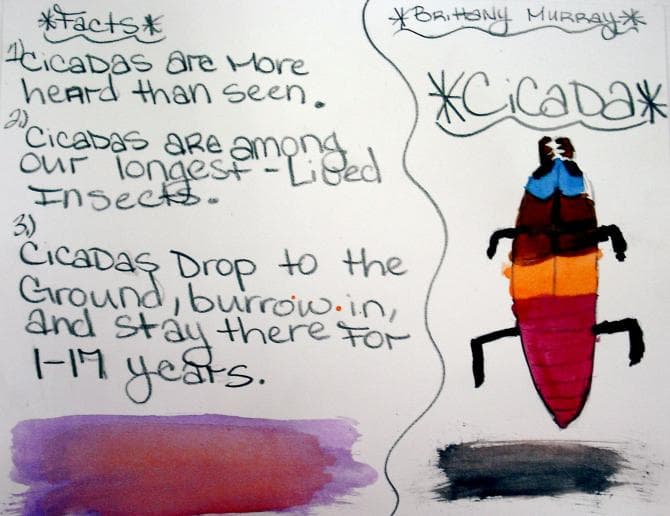 *Facts*
1) Cicadas are More
heard than seen.
2.) Cicadas are among
our longest-Lived
Insects.
3.)
Cicadas Drop to the
Ground, burrow in,
and stay there For
1-17 years.
*Brittany Murray*
*Cicada*